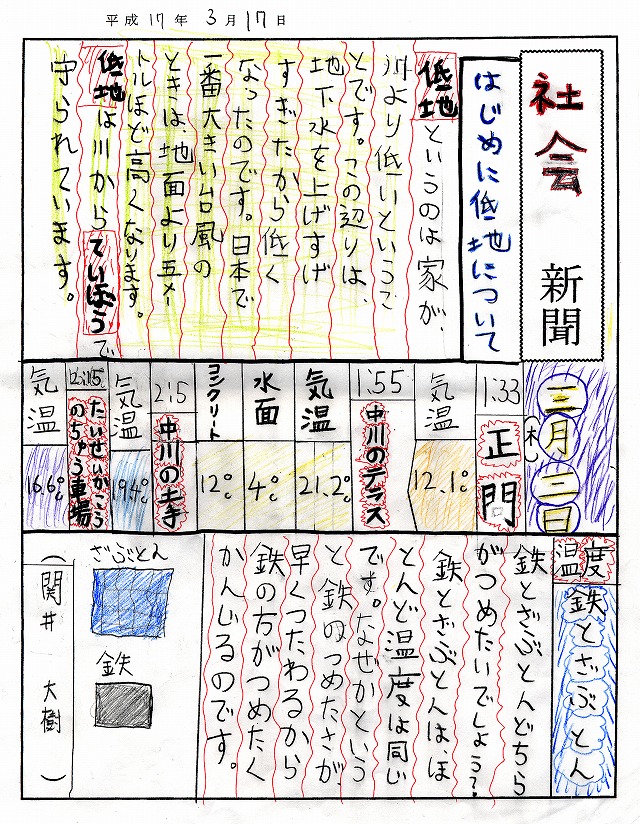 平成17年3月17日
社会 新聞
はじめに低地について
低地というのは家が、
川より低いというこ
とです。この辺りは、
地下水を上げすげ
すぎたから低く
なったのです。日本で
一番大きい台風の
ときは、地面より五メー
トルほど高くなります。
低地は川からていぼうで
守られています。
三月二日
1:33
正門
気温
12.1℃
1:55
中川のテラス
気温
21.2℃
水面
4℃
コンクリート
12℃
2:5
中川の土手
気温
19.4℃
たいせいかこう
のちゅう車場
気温
16.6℃
温度
鉄とざぶとん
鉄とざぶとんどちら
がつめたいでしょう?
鉄とざぶとんは、ほ
とんど温度は同じ
です。なぜかという
と鉄のつめたさが、
早くつたわるから
鉄の方がつめたく
かんじるのです。
ざぶとん
鉄
(関井 大樹)